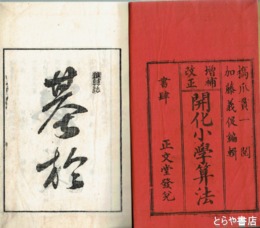 橋爪貫一閲
加藤義促編輯
増補
改正
開化小學算法
書肆
正文堂發兌
基於
とらや書店